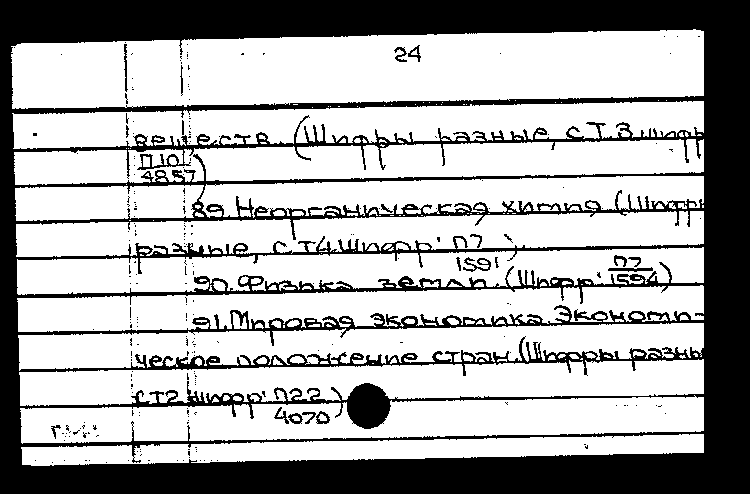 24
веществ. (Шифры разные, с Т.3 шифр
П10
4857)
89. Неорганическая химия (Шифры
разные, с Т4 шифр: П7
1591).
90. Физика земли. (Шифр: П7
1594)
91. Мировая экономика. Экономи-
ческое положение стран. (Шифры разны
с Т2 шифр: П22
4070)